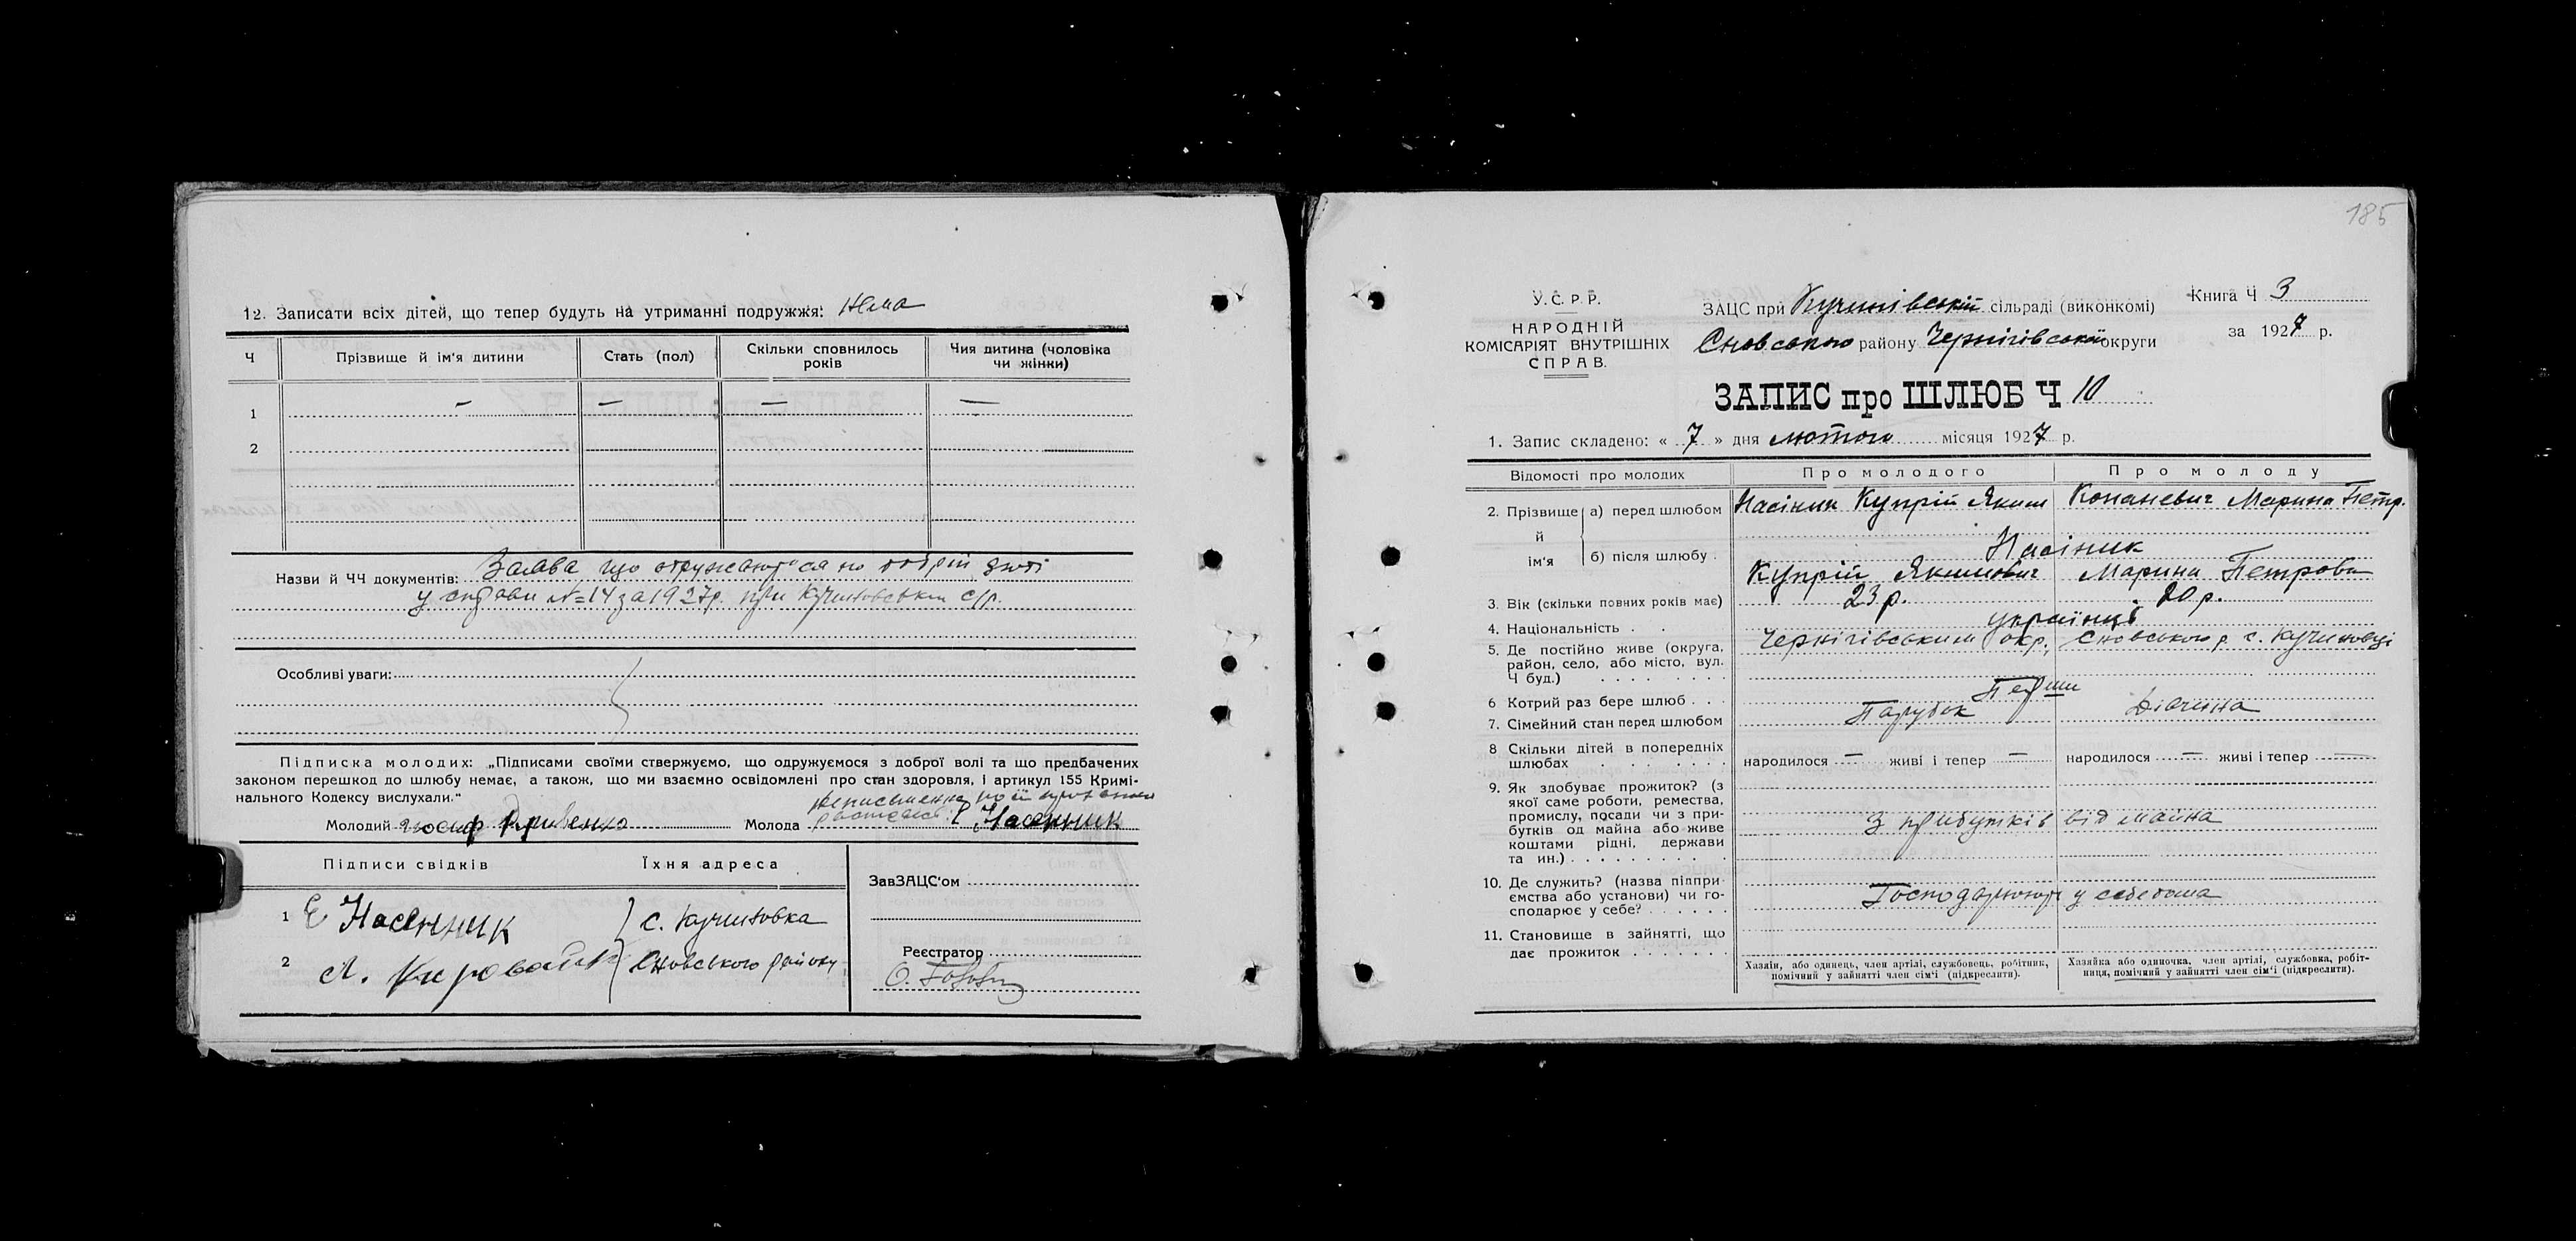 12. Записати всіх дітей, що тепер будуть на утриманні подружжя: Нема
Ч Прізвище й ім'я дитини Стать (пол) Скільки сповнилось років Чия дитина (чоловіка чи жінки)
1 — — — —
2
Назви й ЧЧ документів: Заява що
у справи №14 за 1927р. при с/р.
Особливі уваги:
Підписка молодих: „Підписами своїми стверджуємо, що одружуємося з доброї волі та що предбачених
законом перешкод до шлюбу немає, а також, що ми взаємно освідомлені про стан здоровля, і артикул 155 Кримі-
нального Кодексу вислухали.“
неписьменна
Молодий Иосиф Молода
Підписи свідків Їхня адреса
ЗавЗАЦС'ом
1 Е Насенник с. Кучиновка
Реєстратор
2 Сновського району
185
У.С.Р.Р.
НАРОДНІЙ
КОМІСАРІЯТ ВНУТРІШНІХ
СПРАВ.
ЗАЦС при Кучинівській сільраді (виконкомі)
Сновського району Чернігівської округи
Книга Ч 3
за 1927 р.
ЗАПИС про ШЛЮБ Ч 10
1. Запис складено: « 7 » дня лютого місяця 1927 р.
Відомості про молодих Про молодого Про молоду
2. Прізвище й ім'я а) перед шлюбом Насіник Купрій Яким Конаневич Марина Петр.
б) після шлюбу Насіник
Купрій Якимович Марина Петровн
3. Вік (скільки повних років має) 23 р. 20 р.
4. Національність українці
5. Де постійно живе (округа, Чернігівським окр., Сновського р. с. Кучиновці
район, село, або місто, вул.
Ч буд.)
6 Котрий раз бере шлюб Перши
7. Сімейний стан перед шлюбом Парубок Дівчина
8 Скільки дітей в попередніх
шлюбах народилося — живі і тепер — народилося — живі і тепер —
9. Як здобуває прожиток? (з
якої саме роботи, ремества,
промислу, посади чи з при-
бутків од майна або живе З прибутків від майна
коштами рідні, держави
та ин.)
10. Де служить? (назва підпри-
ємства або установи) чи го- Господарюють у себе дома
сподарює у себе?
11. Становище в зайнятті, що
дає прожиток
Хазяїн, або одинець, член артілі, службовець, робітник,
помічний у зайнятті член сім'ї (підкреслити).
Хазяйка або одиночка, член артілі, службовка, робіт-
ниця, помічний у зайнятті член сім'ї (підкреслити).